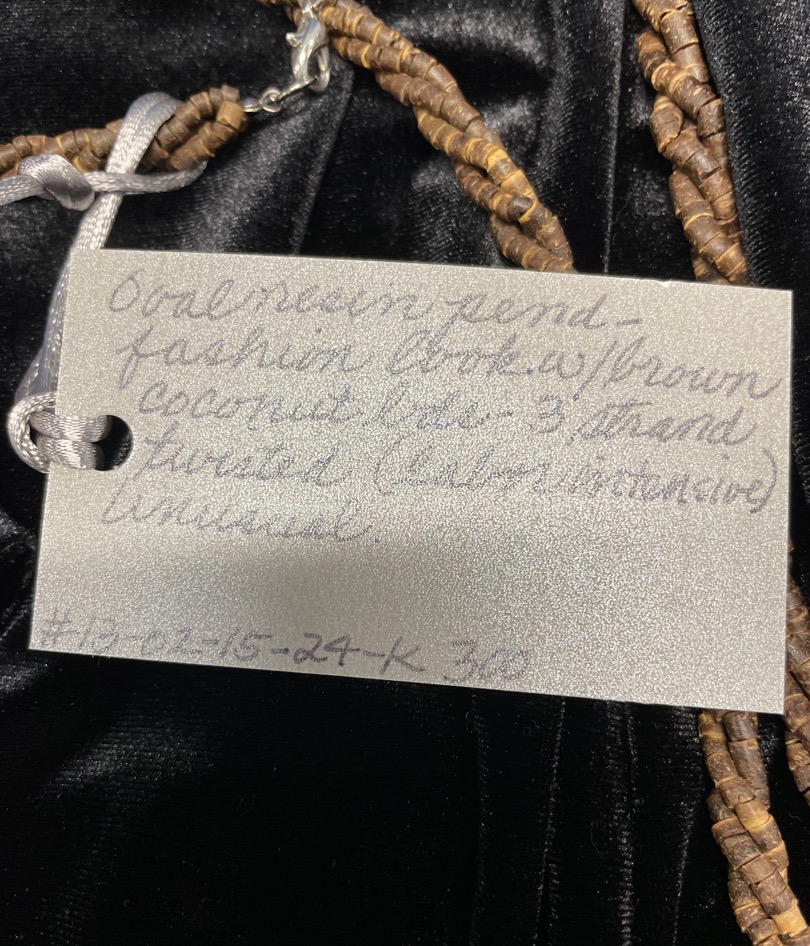 Oval resin pend-
fashion look. w/brown
coconut bds - 3 strand
twisted (labor intensive)
Unusual.
#13-02-15-24-K 300